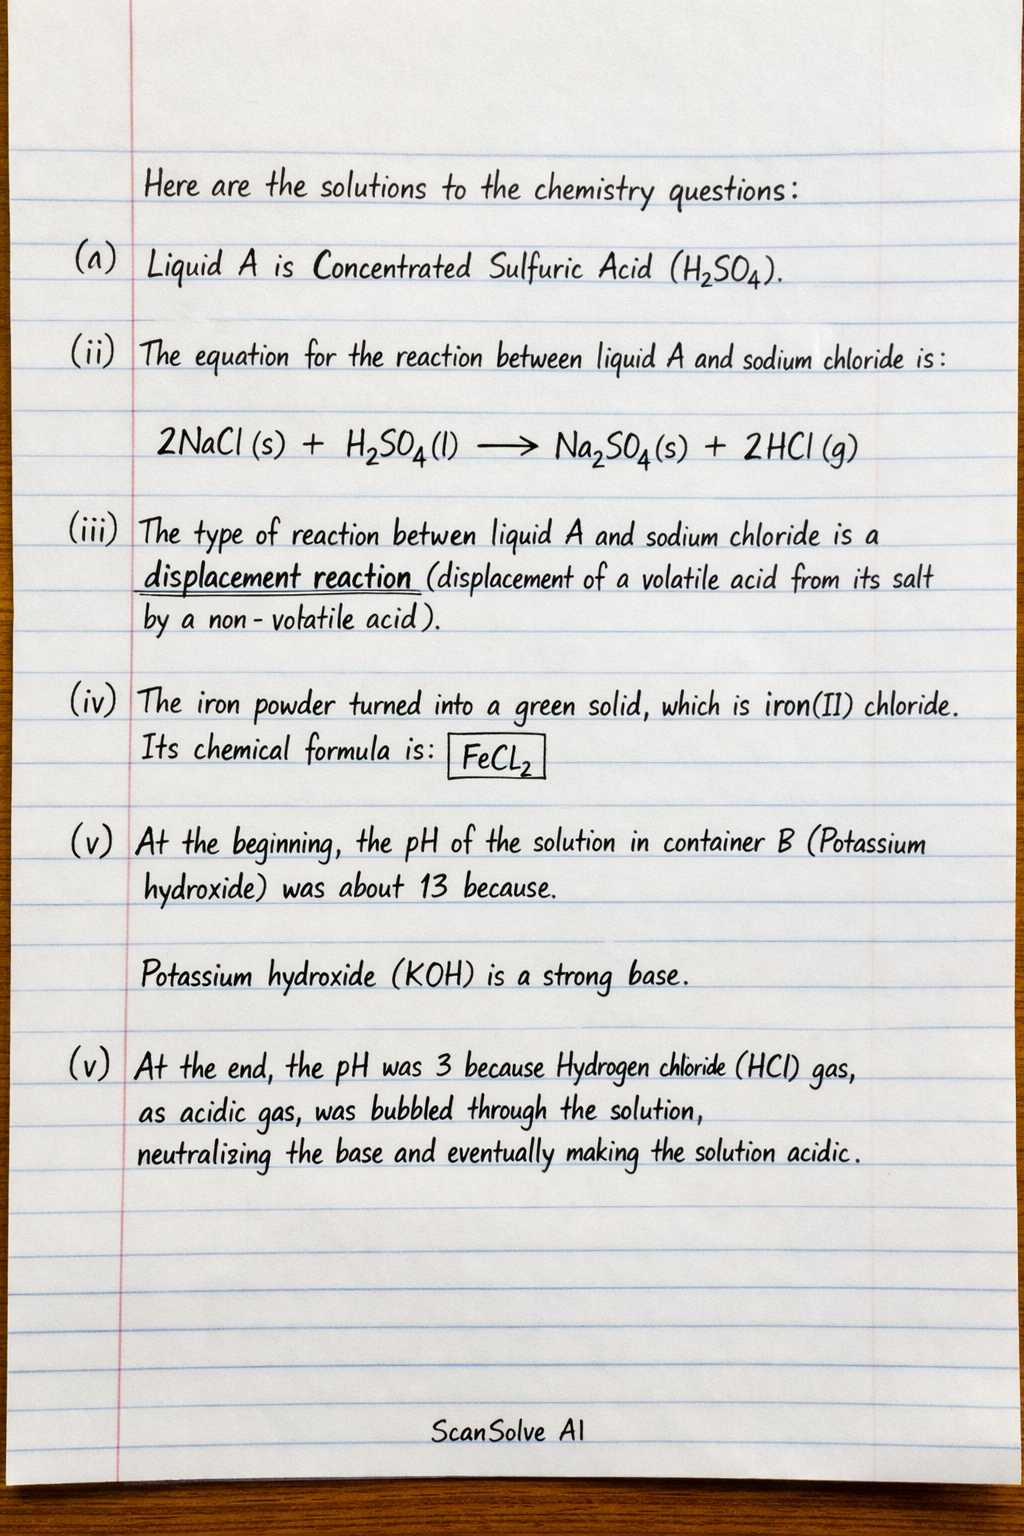 Here are the solutions to the chemistry questions:
(a) Liquid A is Concentrated Sulfuric Acid (H₂SO₄).
(ii) The equation for the reaction between liquid A and sodium chloride is:
2NaCl (s) + H₂SO₄ (l) ⟶ Na₂SO₄ (s) + 2HCl (g)
(iii) The type of reaction betwen liquid A and sodium chloride is a
displacement reaction (displacement of a volatile acid from its salt
by a non-volatile acid).
(iv) The iron powder turned into a green solid, which is iron(II) chloride.
Its chemical formula is: FeCL₂
(v) At the beginning, the pH of the solution in container B (Potassium
hydroxide) was about 13 because.
Potassium hydroxide (KOH) is a strong base.
(v) At the end, the pH was 3 because Hydrogen chloride (HCl) gas,
as acidic gas, was bubbled through the solution,
neutralizing the base and eventually making the solution acidic.
ScanSolve AI